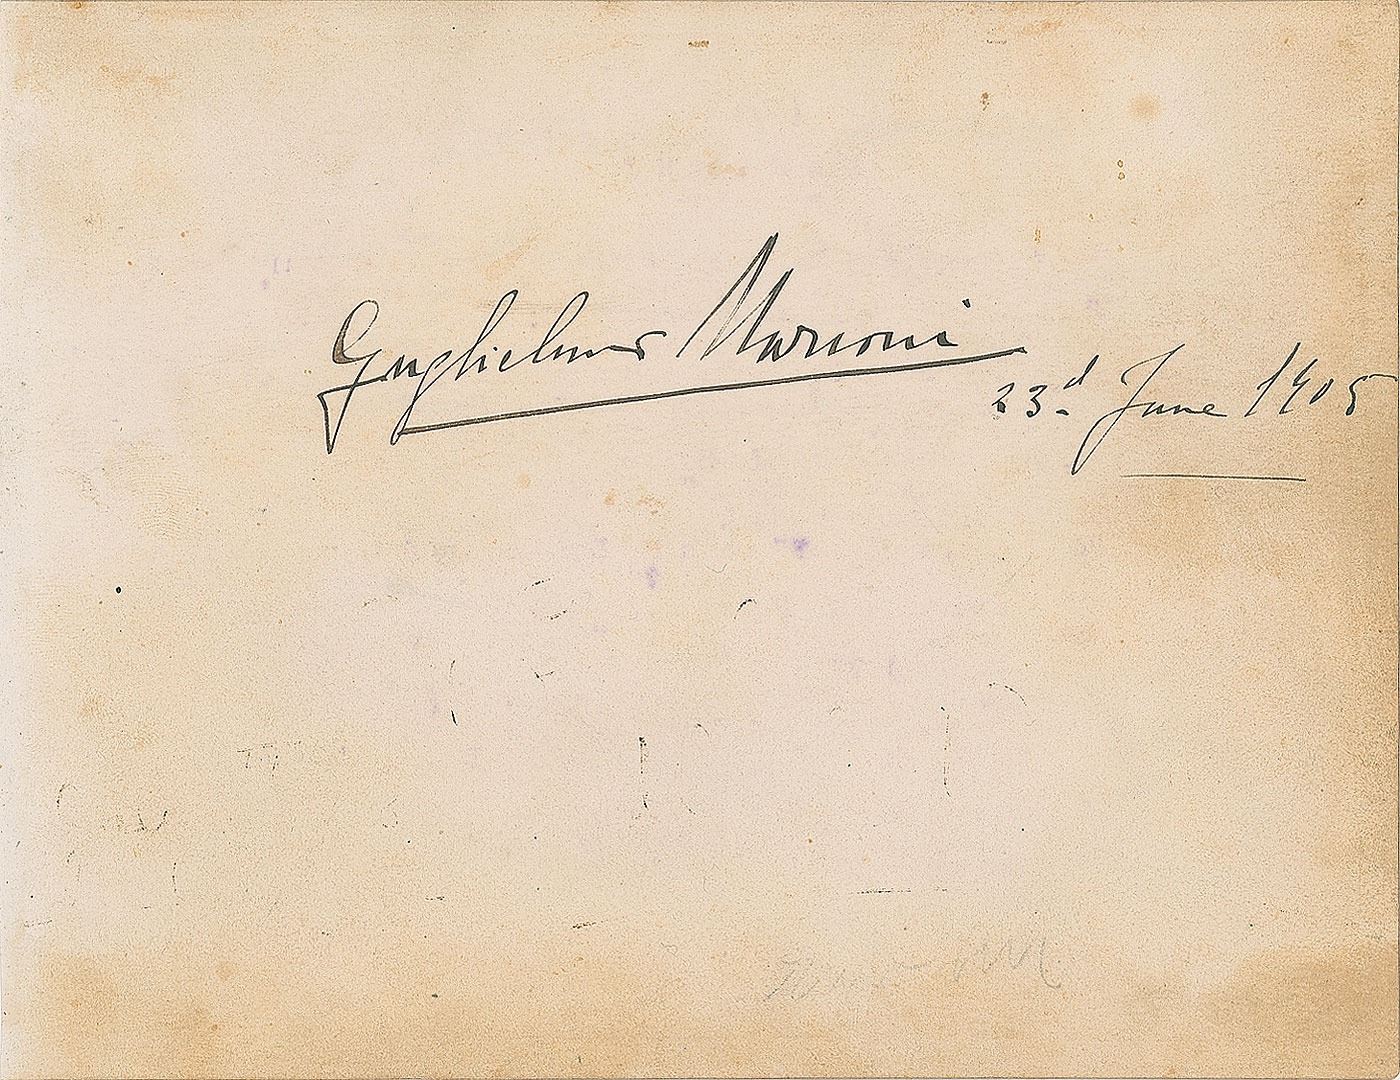 Guglielmo Marconi
23d June 1905